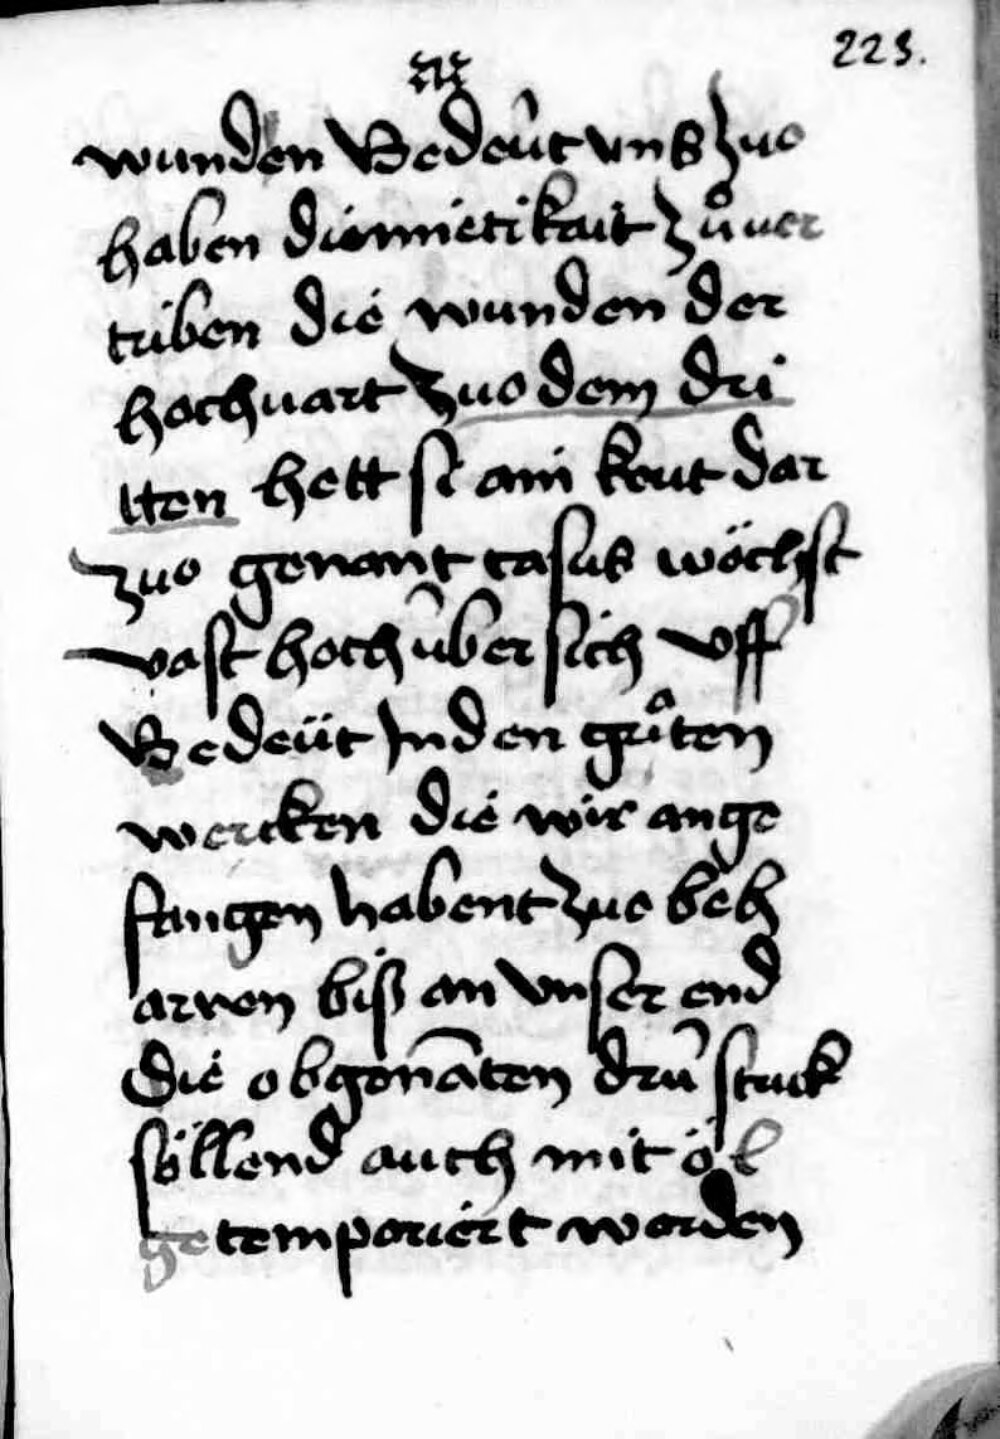 223.
wunden Bedeût vns zuo
haben diemietikait zůuer
triben die wunden der
hochuart zuo dem dri
tten hett si ain krut dar
zuo genant casus wöchst
vast hoch ûber sich vff
Bedeüt Jn den gůten
wercken die wir ange
fangen habent zuo beh
arren biß an vnser end
Die obgenāten drû stuck
söllend auch mit öl
getemporiert werden